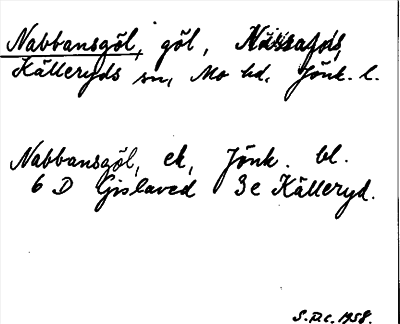 Nabbansgöl, göl,
Källeryds sn, Mo hd, Jönk. l.
Nabbansgöl, ek, Jönk. bl.
6 D Gislaved 3e Källeryd.
1958.